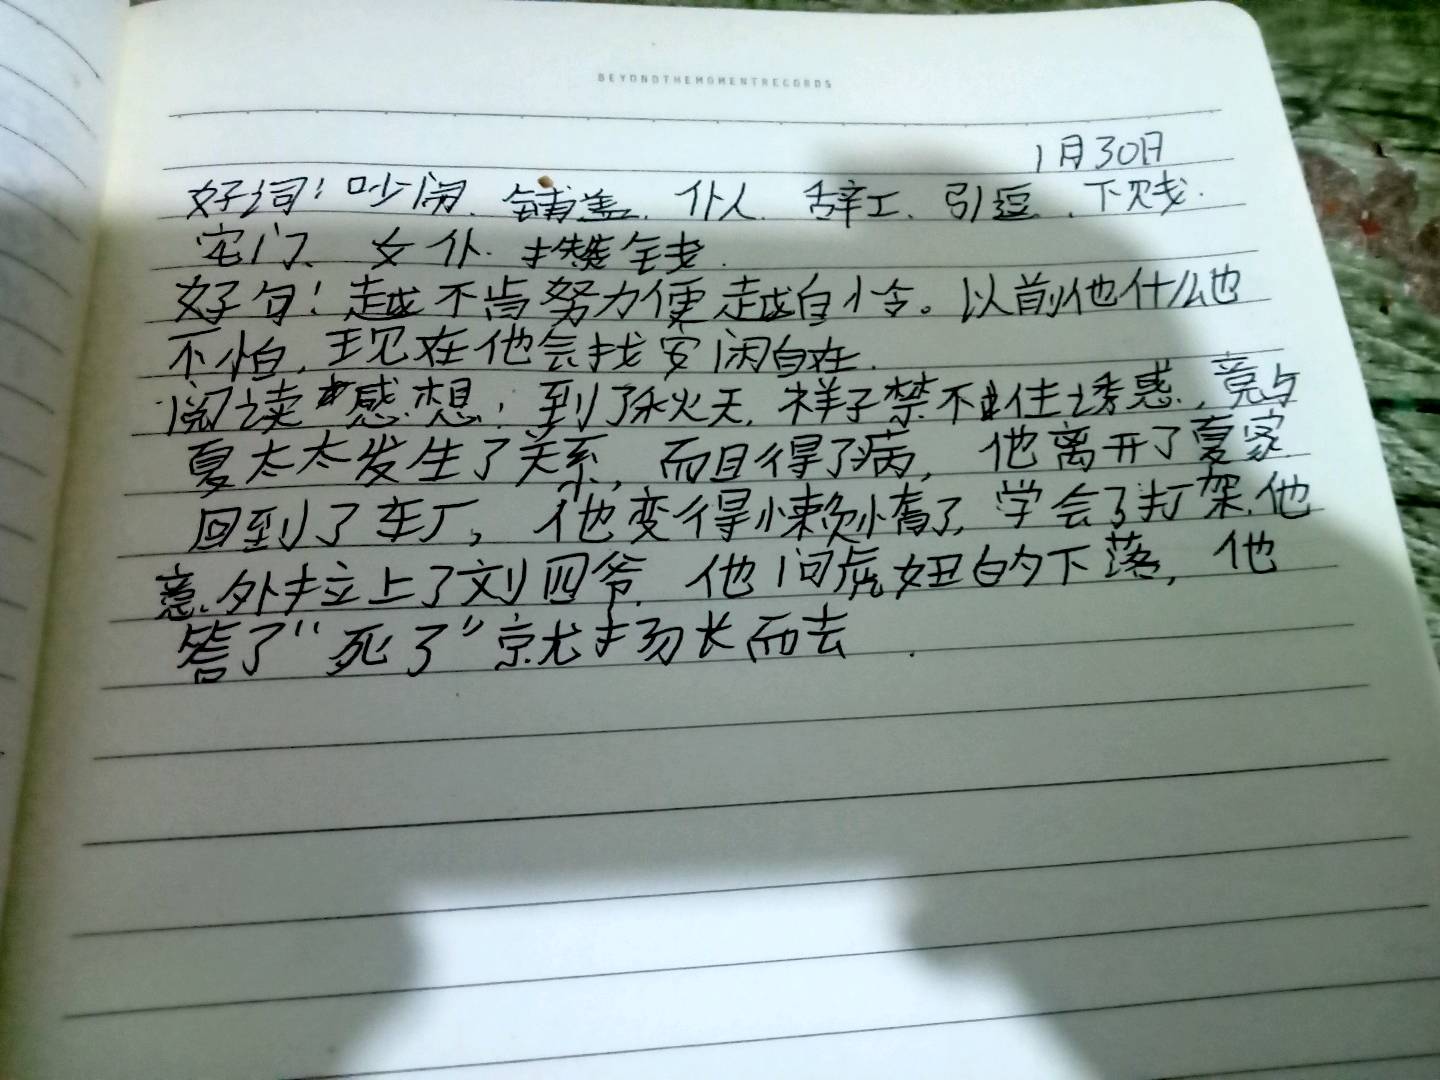 BEYONDTHEMOMENTRECORDS
1月30日
好词：吵闹、铺盖、仆人、辞工、引逗、下贱、
宅门、女仆、攒钱
好句：越不肯努力便越自怜。以前他什么也
不怕，现在他会找安闲自在.
阅读感想：到了秋天，祥子禁不住诱惑，竟与
夏太太发生了关系，而且得了病，他离开了夏家
回到了车厂，他变得懒惰了，学会了打架，他
意外拉上了刘四爷，他问虎妞的下落，他
答了“死了”就扬长而去.